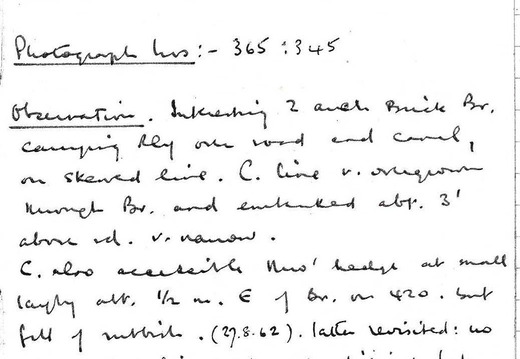 Photograph Nos :- 365 : 345
Observation. Interesting 2 arch Brick Br.
carrying Rly over road and canal,
on skewed line. C. line v. overgrown
through Br. and embanked abt. 3'
above rd. v. narrow.
C. also accessible thro' hedge at small
layby abt. 1/2 m. E of Br. on 420. but
full of rubbish. (27.8.62). latter revisited: no